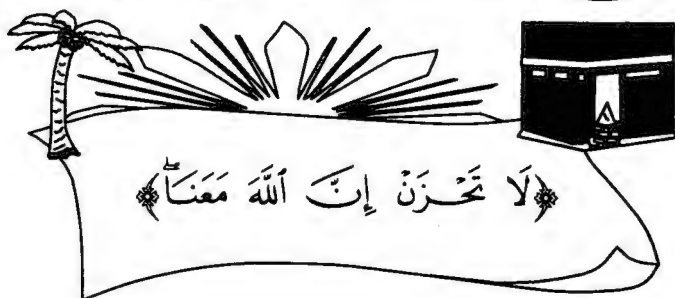 ﴿لَا تَحْزَنْ إِنَّ ٱللَّهَ مَعَنَاۖ﴾